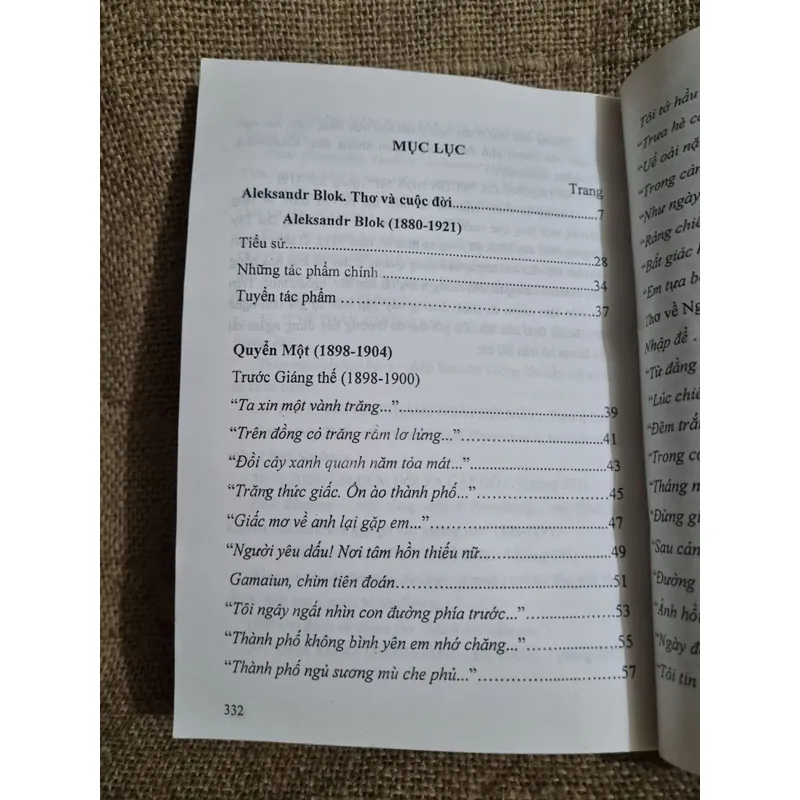 MỤC LỤC
Trang
Aleksandr Blok. Thơ và cuộc đời..................................7
Aleksandr Blok (1880-1921)
Tiểu sử..........................................................28
Những tác phẩm chính ..........................................34
Tuyển tác phẩm ................................................37
Quyển Một (1898-1904)
Trước Giáng thế (1898-1900)
“Ta xin một vành trăng...”......................................39
“Trên đồng cỏ trăng rằm lơ lửng...”............................41
“Đồi cây xanh quanh năm tỏa mát...”............................43
“Trăng thức giấc. Ồn ào thành phố...”..........................45
“Giấc mơ về anh lại gặp em...”..................................47
“Người yêu dấu! Nơi tâm hồn thiếu nữ...........................49
Gamaiun, chim tiên đoán.........................................51
“Tôi ngây ngất nhìn con đường phía trước...”...................53
“Thành phố không bình yên em nhớ chăng...”.....................55
“Thành phố ngủ sương mù che phủ...”............................57
332
Tôi tớ hầu
“Trưa hè
“Uể oải
“Trong
“Như ngày
“Ráng
“Bất giác
“Em tựa
Thơ về
Nhập đề .
“Từ đằng
“Lúc
“Đêm
“Trong
“Tháng
“Đừng
“Sau
“Đường
“Ánh
“Ngày
“Tôi tin